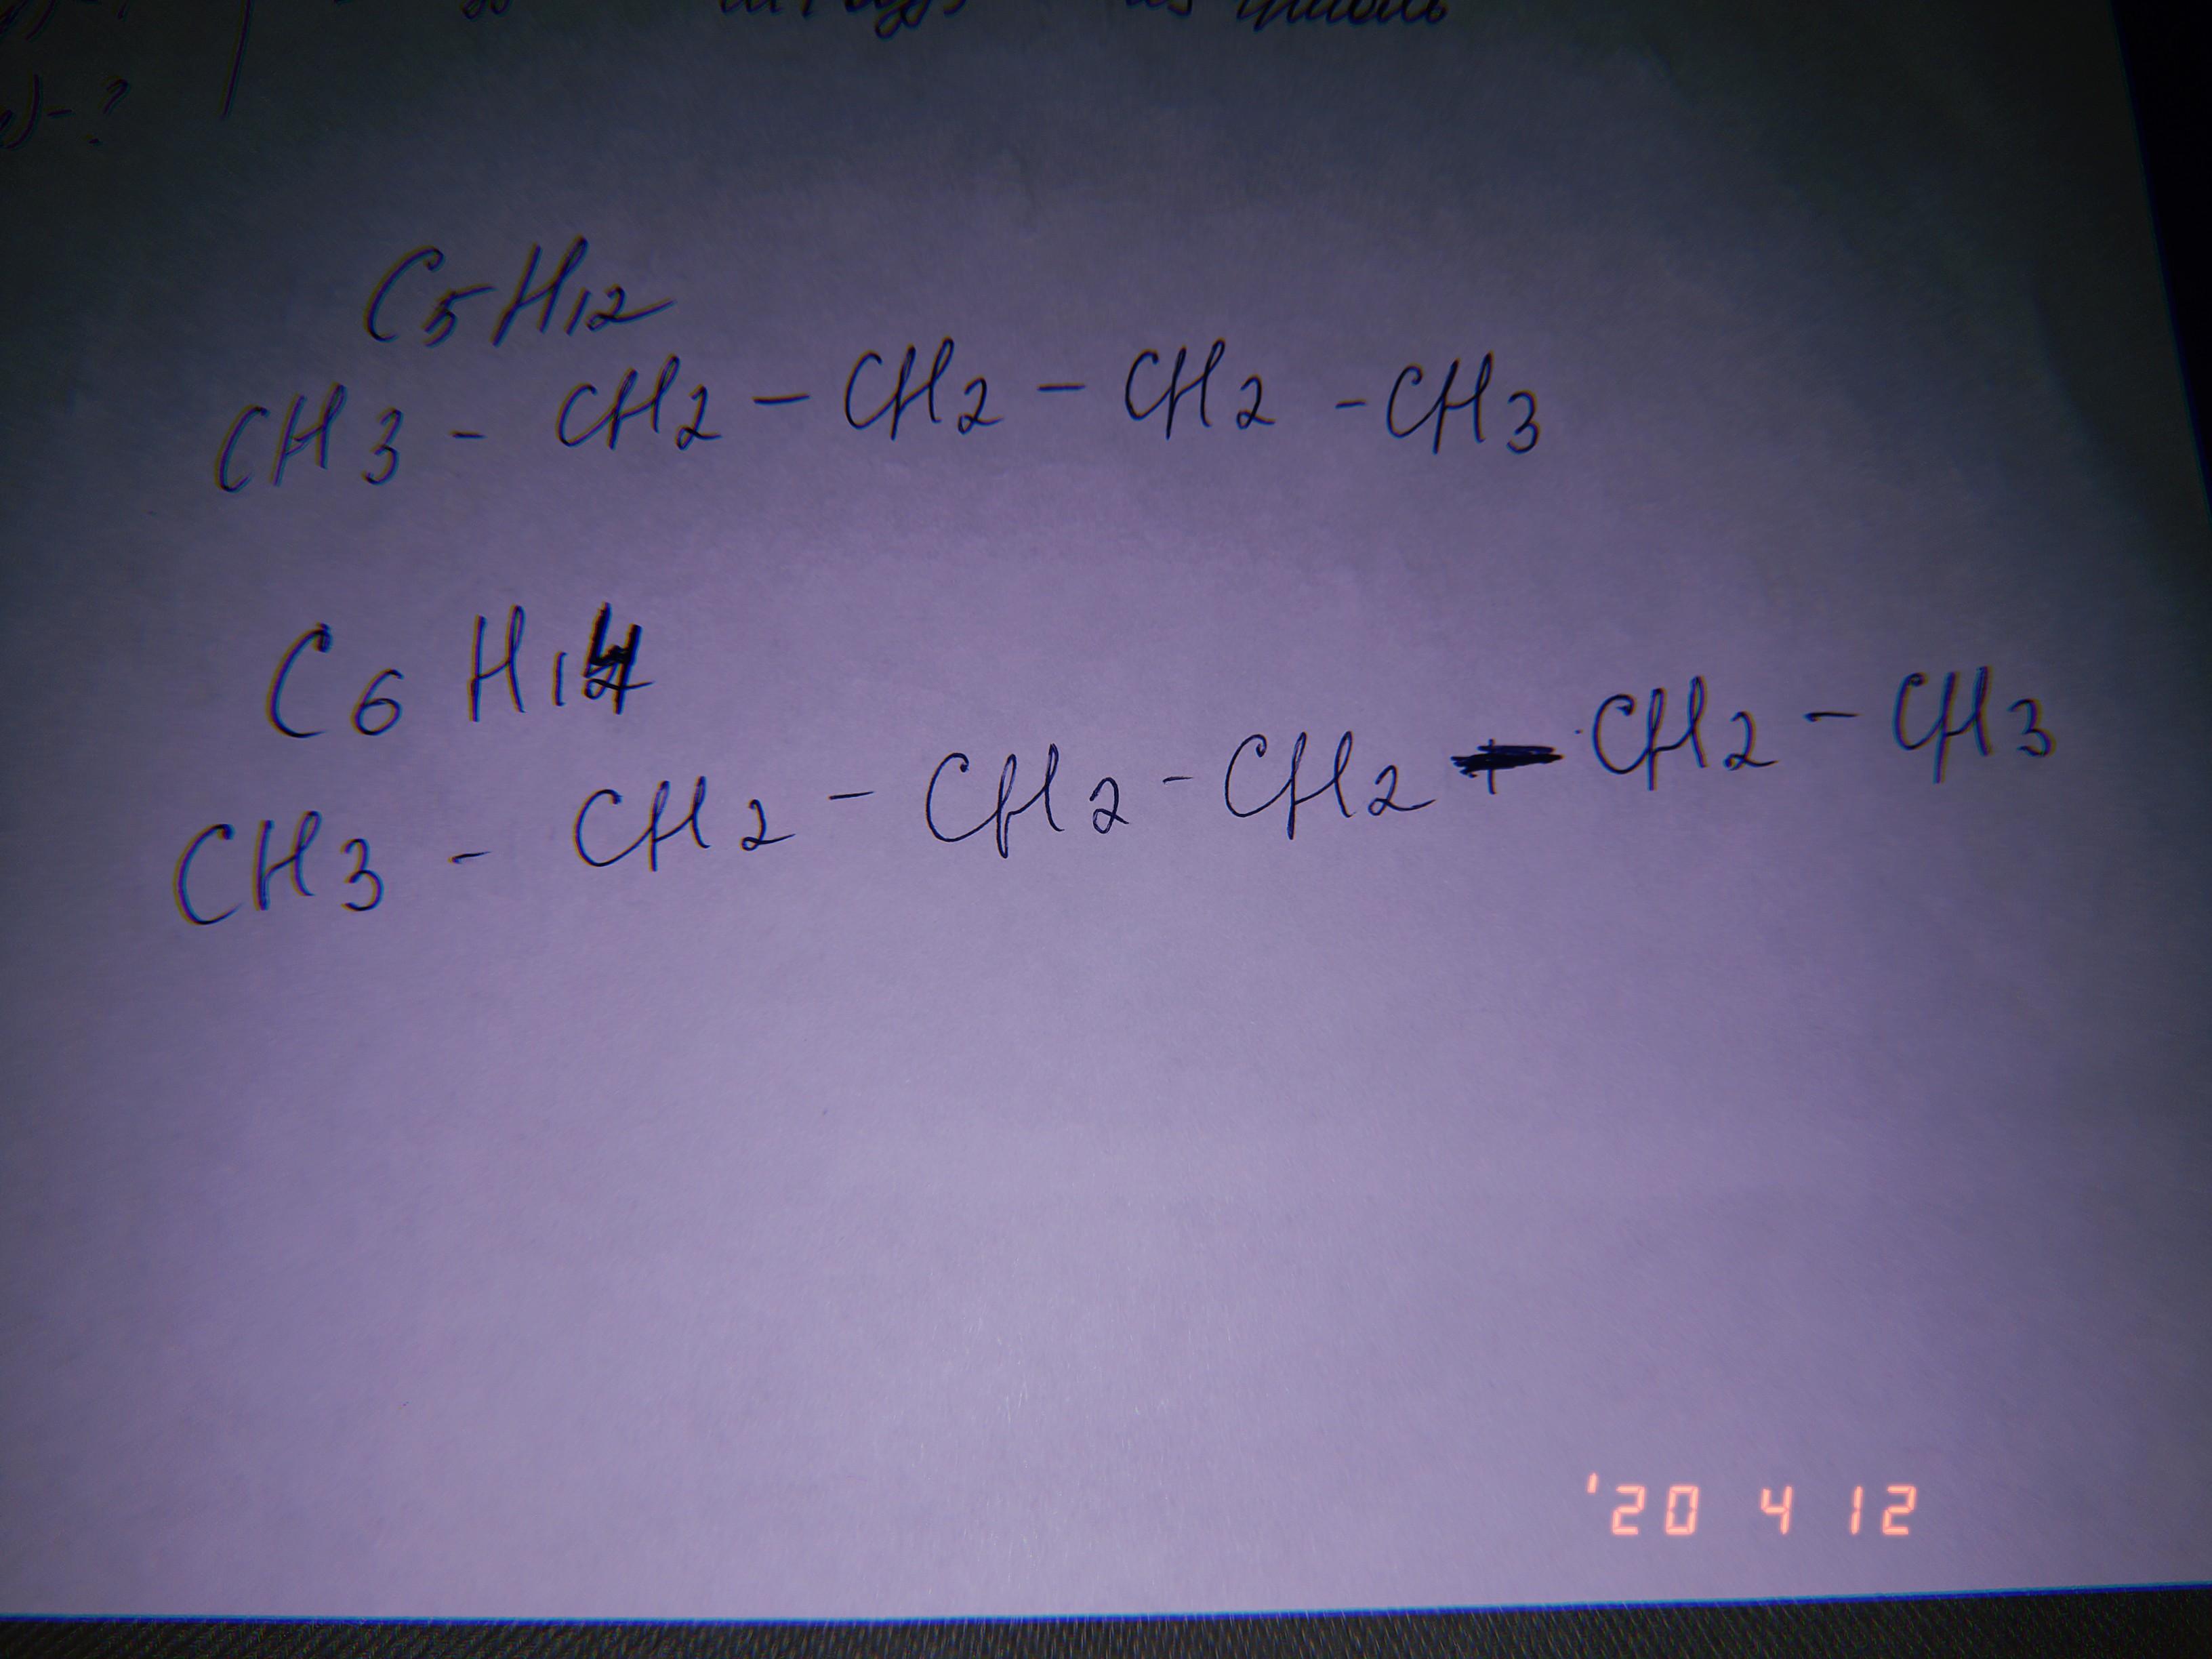 - ?
C5H12
CH3 - CH2 - CH2 - CH2 - CH3
C6H14
CH3 - CH2 - CH2 - CH2 - CH2 - CH3
'20 4 12